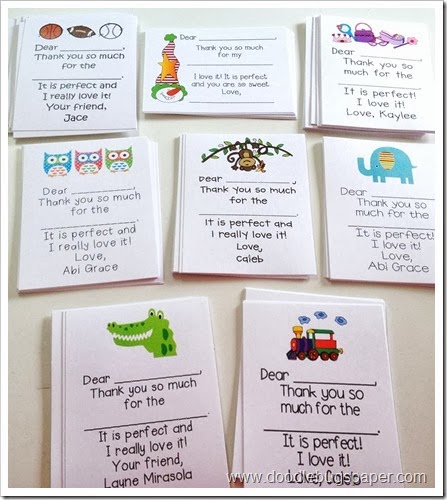 Dear __________,
Thank you so much
for the
____________.
It is perfect and
I really love it!
Your friend,
Jace
Dear __________,
Thank you so much
for my
____________
I love it! It is perfect
and you are so sweet.
Love,
Dear __________,
Thank you so much
for the
____________
It is perfect!
I love it!
Love, Kaylee
Dear __________,
Thank you so much
for the
____________.
It is perfect and
I really love it!
Love,
Abi Grace
Dear __________,
Thank you so much
for the
____________.
It is perfect and
I really love it!
Love,
Caleb
Dear __________,
Thank you so much
for the
____________.
It is perfect and
I really love it!
Love,
Abi Grace
Dear __________,
Thank you so much
for the
____________.
It is perfect and
I really love it!
Your friend,
Layne Mirasola
Dear __________,
Thank you so much
for the
____________.
It is perfect!
I love it!
Love,
www.doodlebugspaper.com